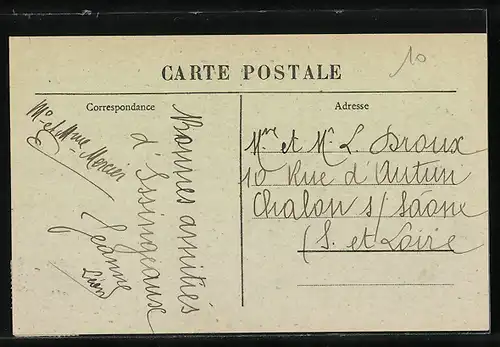 10
CARTE POSTALE
Correspondance
Adresse
Mr et Mme Mercier
Bonnes amitiés
d'Issingeaux
Jeanne
Mme et Mr L. Droux
10 Rue d'Autun
Chalon s/ Saône
(S. et Loire